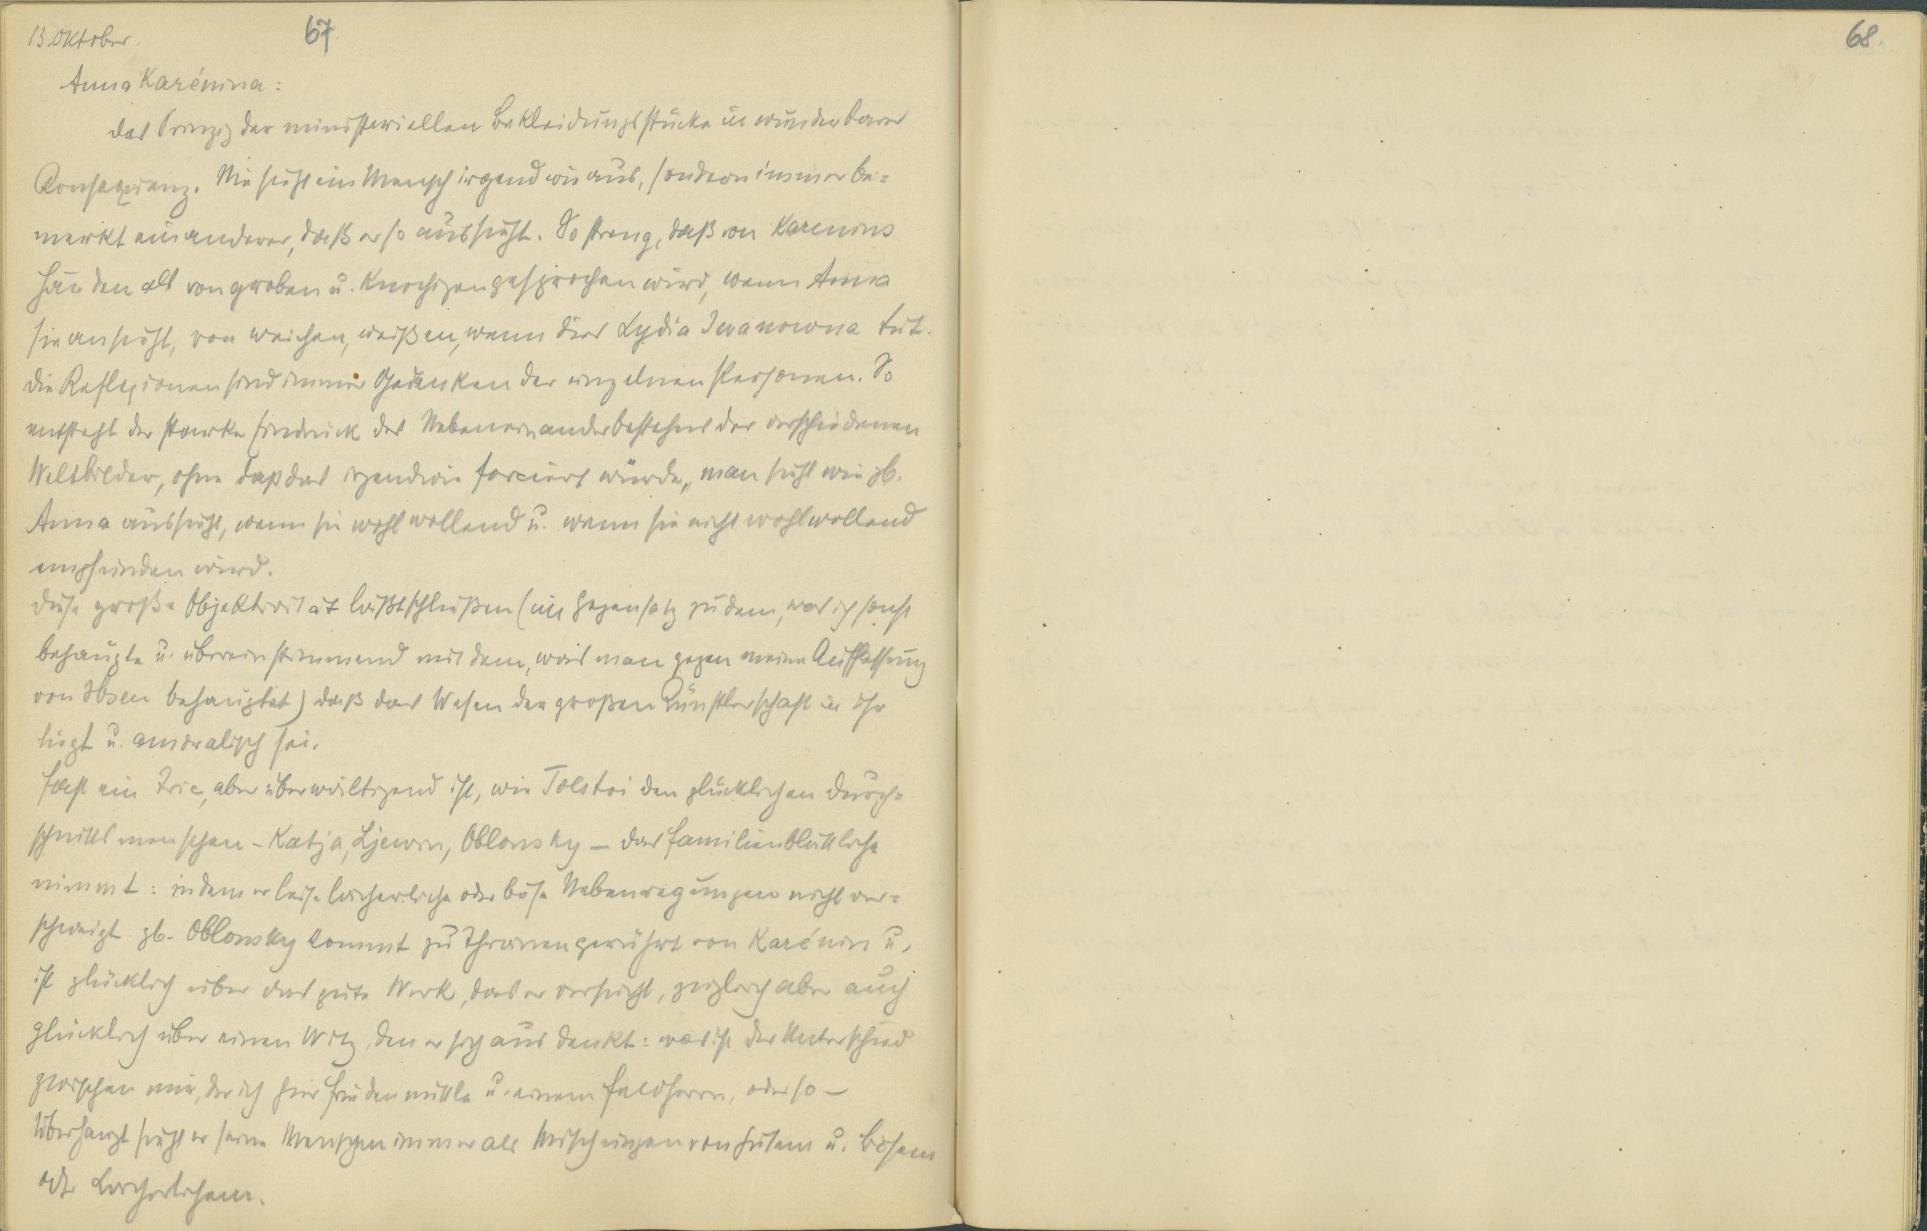 13. Oktober.
67
Anna Karénina:
Das Prinzip der ministeriellen Bekleidungsstücke in wunderbarer
Konsequenz. Nie sieht ein Mensch irgendwie aus, sondern immer be=
merkt ein anderer, daß er so aussieht. So streng, daß von Karenins
Händen als von groben u. knochigen gesprochen wird, wenn Anna
sie ansieht, von weichen, weißen, wenn dies Lydia Iwanowna tut.
Die Reflexionen sind immer Gedanken der einzelnen Personen. So
entsteht der starke Eindruck des Nebeneinanderbestehens der verschiedenen
Weltbilder, ohne daß das irgendwie forciert würde, man sieht wie zb.
Anna aussieht, wenn sie wohlwollend u. wenn sie nicht wohlwollend
empfunden wird.
Diese große Objektivität läßt schließen (im Gegensatz zu dem, was ich sonst
behaupte u. übereinstimmend mit dem, was man gegen meine Auffassung
von Ibsen behauptet) daß das Wesen der großen Künstlerschaft in ihr
liegt u. amoralisch sei.
Fast ein Tric, aber überwältigend ist, wie Tolstoi den glücklichen Durch=
schnittsmenschen – Katja, Ljewin, Oblonsky – das Familienblattliche
nimmt: indem er leise lächerliche oder böse Nebenregungen nicht ver=
schweigt. zb. Oblonsky kommt zu Thränen gerührt von Karénin u.
ist glücklich über das gute Werk, das er versucht, zugleich aber auch
glücklich über einen Witz, den er sich ausdenkt: was ist der Unterschied
zwischen mir, der ich hier Frieden mittle u. einem Feldherrn, oder so –
Überhaupt sieht er seine Menschen immer als Mischungen von Gutem u. Bösem
od. Lächerlichem.
68.